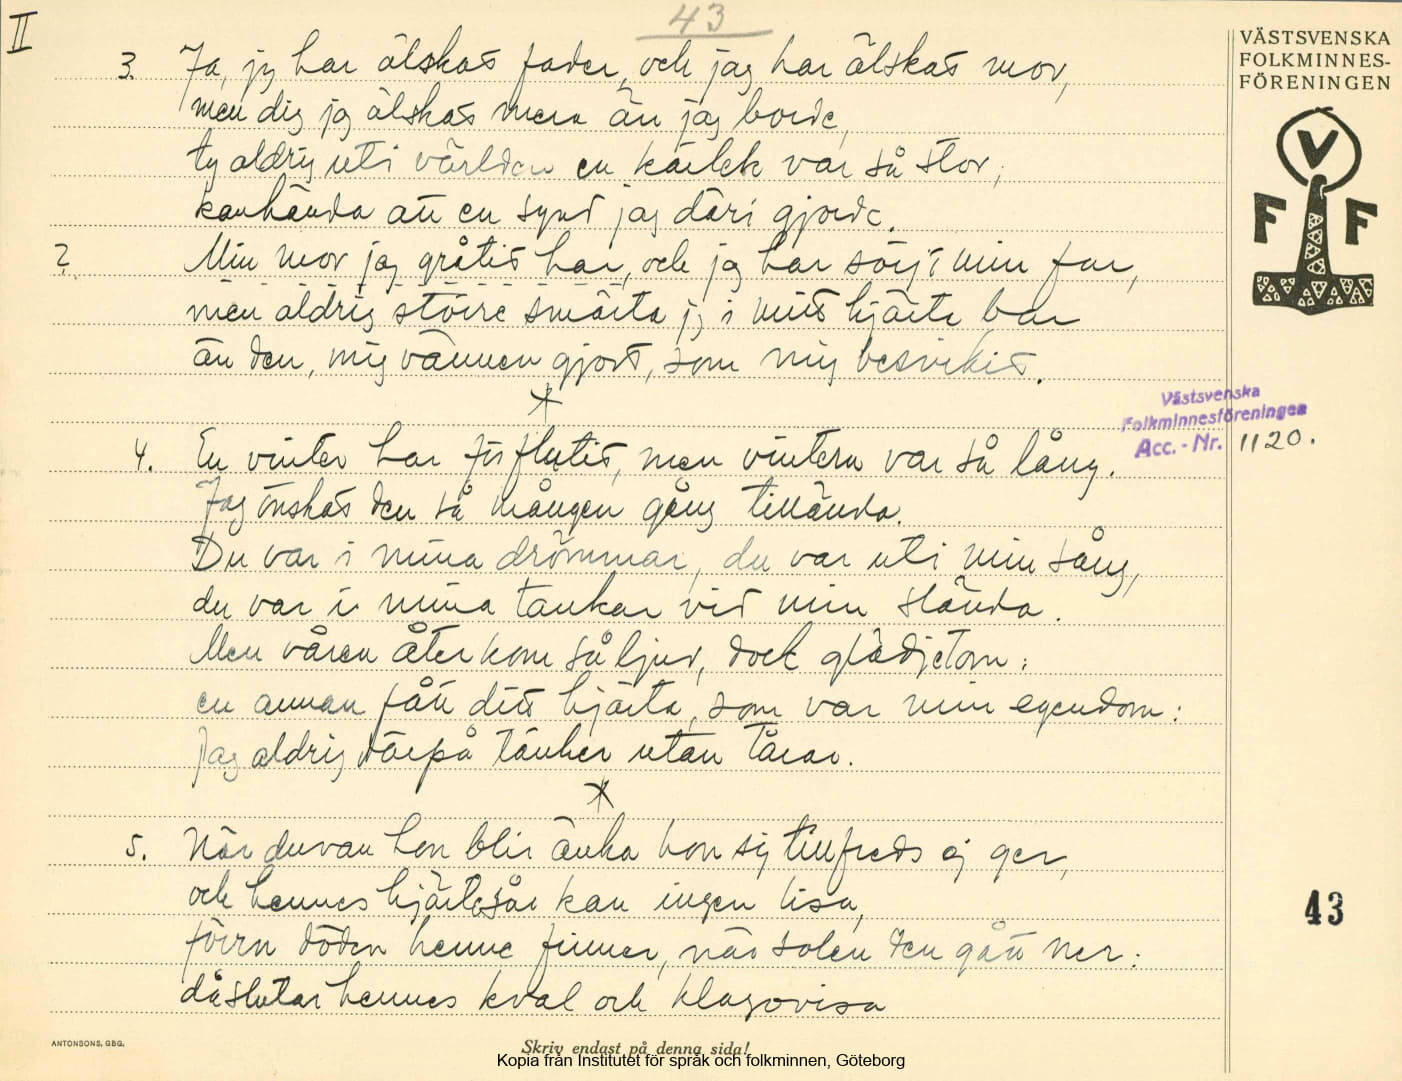 II
43
VÄSTSVENSKA
FOLKMINNES-
FÖRENINGEN
V
F F
3. Ja, jg har älskat fader, och jag har älskat mor,
men dig jag älskat mera än jag borde,
ty aldrig uti världen en kärlek var så stor,
kanhända att en synd jag däri gjorde.
? Min mor jag gråtit har, och jag har sörjt min far,
men aldrig större smärta jg i mitt hjärta bar
än den, mig vännen gjort, som mig besvikit.
Västsvenska
Folkminnesföreningen
Acc.-Nr. 1120.
4. En vinter har förflutit, men vintern var så lång.
Jag önskat den så mången gång tillända.
Du var i mina drömmar, du var uti min sång,
du var i mina tankar vid min slända.
Men våren åter kom så ljuv, dock glädjetom:
en annan fått ditt hjärta, som var min egendom:
Jag aldrig därpå tänker utan tårar.
5. När duvan hon blir änka hon sig tillfreds ej ger,
och hennes hjärtesår kan ingen lisa,
förrn döden henne finner, när solen den gått ner:
då slutar hennes kval och klagovisa
43
ANTONSONS, GBG.
Skriv endast på denna sida!
Kopia från Institutet för språk och folkminnen, Göteborg